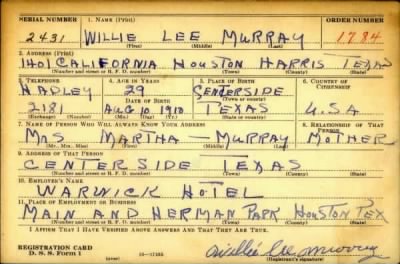 SERIAL NUMBER 1. NAME (Print) ORDER NUMBER
2431 WILLIE LEE MURRAY 1784
(First) (Middle) (Last)
2. ADDRESS (Print)
1401 CALIFORNIA HOUSTON HARRIS TEXAS
(Number and street or R. F. D. number) (Town) (County) (State)
3. TELEPHONE 4. AGE IN YEARS 5. PLACE OF BIRTH 6. COUNTRY OF CITIZENSHIP
HADLEY 29 CENTERSIDE
DATE OF BIRTH (Town or county)
2181 AUG 10 1910 TEXAS U.S.A
(Exchange) (Number) (Mo.) (Day) (Yr.) (State or country)
7. NAME OF PERSON WHO WILL ALWAYS KNOW YOUR ADDRESS 8. RELATIONSHIP OF THAT PERSON
MRS MARTHA — MURRAY MOTHER
(Mr., Mrs., Miss) (First) (Middle) (Last)
9. ADDRESS OF THAT PERSON
CENTERSIDE TEXAS
(Number and street or R. F. D. number) (Town) (County) (State)
10. EMPLOYER'S NAME
WARWICK HOTEL
11. PLACE OF EMPLOYMENT OR BUSINESS
MAIN AND HERMAN PARK HOUSTON TEX
(Number and street or R. F. D. number) (Town) (County) (State)
I AFFIRM THAT I HAVE VERIFIED ABOVE ANSWERS AND THAT THEY ARE TRUE.
REGISTRATION CARD
D. S. S. Form 1 Willie Lee Murray
(Registrant's signature)